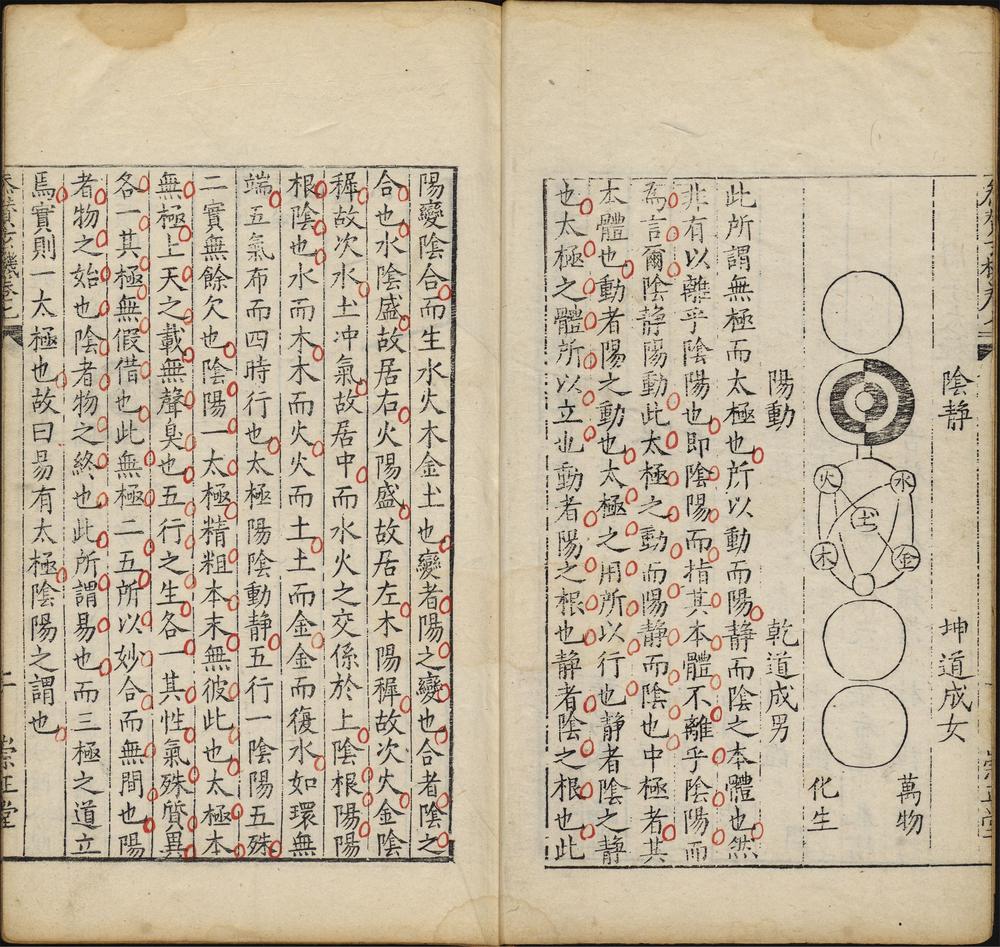 陰静
坤道成女
萬物
化生
水
火
土
金
木
陽動
乾道成男
此所謂無極而太極也所以動而陽静而陰之本體也然
非有以離乎陰陽也即陰陽而指其本體不離乎陰陽而
為言爾陰静陽動此太極之動而陽静而陰也中極者其
本體也動者陽之動也太極之用所以行也静者陰之静
也太極之體所以立也動者陽之根也静者陰之根也此
陽變陰合而生水火木金土也變者陽之變也合者陰之
合也水陰盛故居右火陽盛故居左木陽穉故次火金陰
穉故次水土冲氣故居中而水火之交係於上陰根陽陽
根陰也水而木木而火火而土土而金金而復水如環無
端五氣布而四時行也太極陰陽動静五行一陰陽五殊
二實無餘欠也陰陽一太極精粗本末無彼此也太極本
無極上天之載無聲臭也五行之生各一其性氣殊質異
各一其極無假借也此無極二五所以妙合而無間也陽
者物之始也陰者物之終也此所謂易也而三極之道立
焉實則一太極也故曰易有太極陰陽之謂也
崇正堂